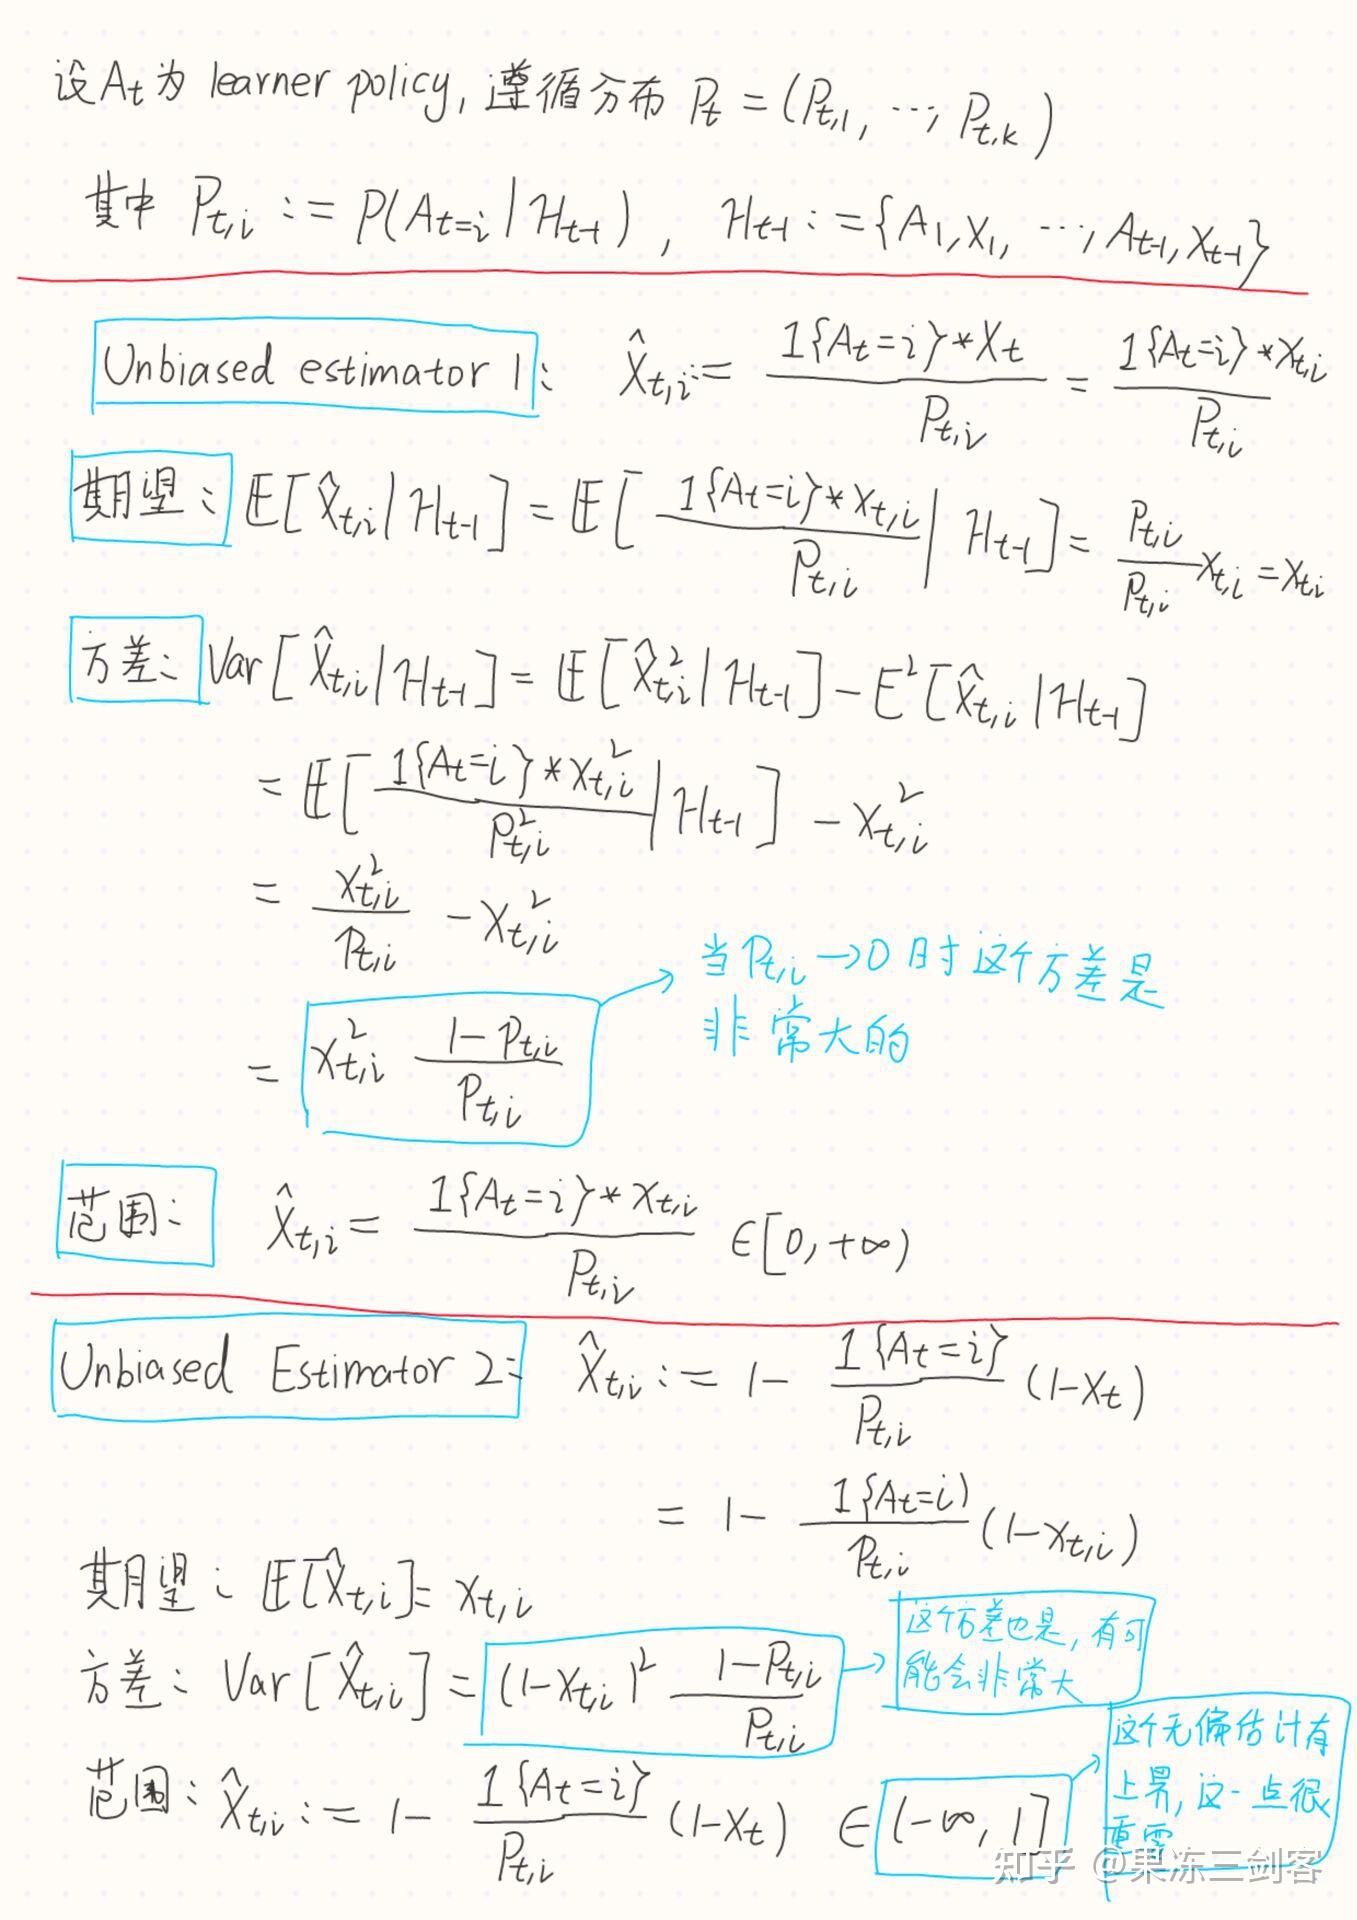 设At为 learner policy, 遵循分布 Pt = (Pt,1, ⋯, Pt,k)
其中 Pt,i := P(At=i | Ht-1), Ht-1 := {A1, X1, ⋯, At-1, Xt-1}
Unbiased estimator 1: X̂t,i := 1{At=i}*Xt / Pt,i = 1{At=i}*xt,i / Pt,i
期望: E[X̂t,i | Ht-1] = E[ 1{At=i}*xt,i / Pt,i | Ht-1 ] = Pt,i / Pt,i xt,i = xt,i
方差: Var[X̂t,i | Ht-1] = E[X̂²t,i | Ht-1] - E²[X̂t,i | Ht-1]
= E[ 1{At=i}*x²t,i / P²t,i | Ht-1 ] - x²t,i
= x²t,i / Pt,i - x²t,i
当Pt,i→0时这个方差是
非常大的
= x²t,i (1-Pt,i) / Pt,i
范围: X̂t,i = 1{At=i}*xt,i / Pt,i ∈[0, +∞)
Unbiased Estimator 2: X̂t,i := 1 - 1{At=i} / Pt,i (1-Xt)
= 1 - 1{At=i) / Pt,i (1-xt,i)
期望: E[X̂t,i] = xt,i
方差: Var[X̂t,i] = (1-xt,i)² (1-Pt,i) / Pt,i
这个方差也是,有可
能会非常大
范围: X̂t,i := 1 - 1{At=i} / Pt,i (1-Xt) ∈ (-∞, 1]
这个无偏估计有
上界,这一点很
重要
知乎 @果冻三剑客